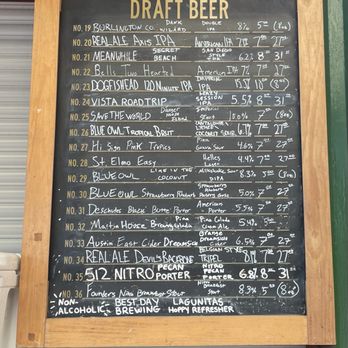 DRAFT BEER
NO. 19 BURLINGTON CO. DANK WIZARD DOUBLE IPA 8% 5 (8oz)
NO. 20 REAL ALE AXIS IPA AMERICAN IPA 7% 7 27
NO. 21 MEANWHILE SECRET BEACH SAN DIEGO STYLE 6.2% 8 31
NO. 22 Bells Two Hearted American IPA 7% 7 27
NO. 23 DOGFISHEAD 120 MINUTE IPA 10 (8oz)
NO. 24 VISTA ROADTRIP SESSION IPA 5.5% 8 31
NO. 25 SAVE THE WORLD Stout 10.0% 7 (8oz)
NO. 26 BLUE OWL TROPICAL BRUT 7 27
NO. 27 Hi Sign Pink Tropics Guava Sour 4.6% 7 27
NO. 28 St. Elmo Easy Helles Lager 4.4% 7 27
NO. 29 BLUE OWL LIME IN THE COCONUT DIPA 8.3% 5 (8oz)
NO. 30 BLUE OWL Strawberry Rhubarb 5.0% 7 27
NO. 31 Deschutes Black Butte Porter American Porter 5.5% 7 27
NO. 32 Martin House Brewing Pina Colada 5.4%
NO. 33 Austin East Cider Dreamsicle Orange Dreamsicle Cider 6.5% 7 27
NO. 34 REAL ALE DEVIL'S BACKBONE BELGIAN STYLE TRIPEL 8% 7 27
NO. 35 512 NITRO PECAN PORTER NITRO PECAN PORTER 6.8% 8 31
NO. 36 Founders Nitro Breakfast Stout Breakfast Stout 8.3% 5 (8oz)
NON-ALCOHOLIC BEST DAY BREWING LAGUNITAS HOPPY REFRESHER